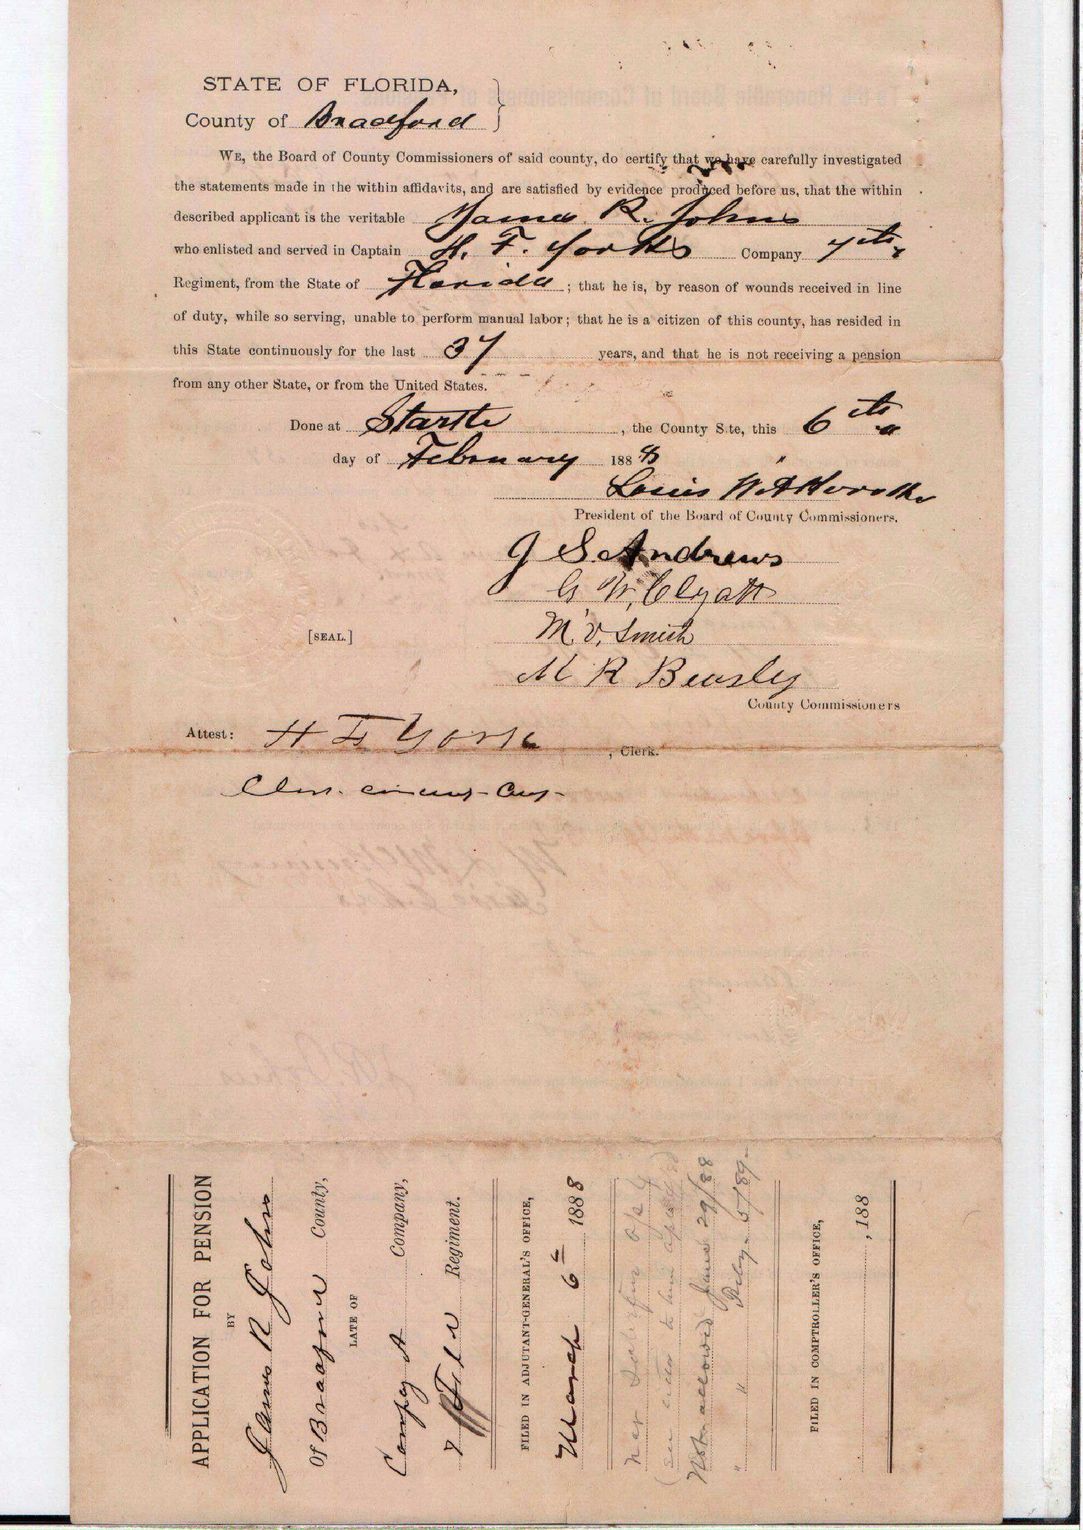 STATE OF FLORIDA,
County of Bradford
WE, the Board of County Commissioners of said county, do certify that we have carefully investigated
the statements made in the within affidavits, and are satisfied by evidence produced before us, that the within
described applicant is the veritable James R. Johns
who enlisted and served in Captain H. F. York's Company 7th
Regiment, from the State of Florida ; that he is, by reason of wounds received in line
of duty, while so serving, unable to perform manual labor; that he is a citizen of this county, has resided in
this State continuously for the last 37 years, and that he is not receiving a pension
from any other State, or from the United States.
Done at Starke , the County Site, this 6th
day of February 1888
Louis
President of the Board of County Commissioners.
J S. Andrews
G W. Clyatt
M. V. Smith
M R Beasley
[SEAL.]
County Commissioners
Attest: H F York , Clerk.
APPLICATION FOR PENSION
BY
James R Johns
Of Bradford County,
LATE OF
Compy A Company,
7 Fla Regiment.
FILED IN ADJUTANT-GENERAL'S OFFICE,
March 6th 1888
Not allowed June 29/88
" " 5/89
FILED IN COMPTROLLER'S OFFICE,
, 188